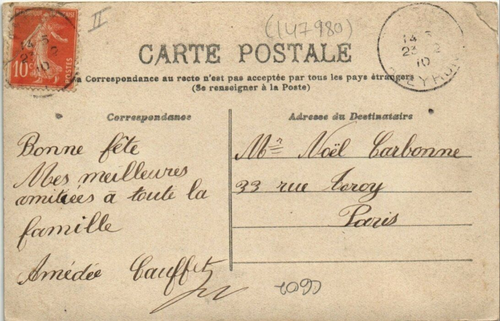 II
(147980)
10c
14 5
23 2
10
CARTE POSTALE
La Correspondance au recto n'est pas acceptée par tous les pays étrangers
(Se renseigner à la Poste)
Correspondance
Bonne fête
Mes meilleures
amitiées à toute la
famille
Amédée
Adresse du Destinataire
Noël Carbonne
33 rue
Paris